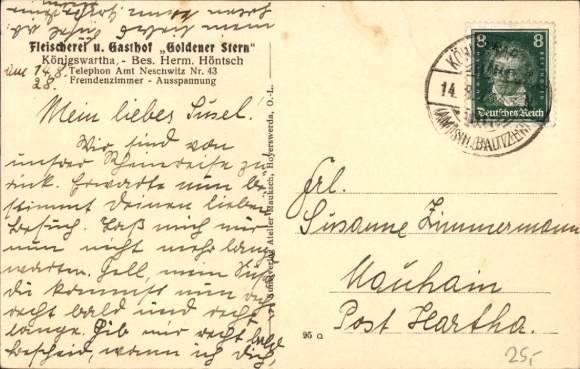 Fleischerei u. Gasthof „Goldener Stern"
Königswartha, - Bes. Herm. Höntsch
Telephon Amt Neschwitz Nr. 43
Fremdenzimmer - Ausspannung
am 14.8.
28.
Mein liebes Susel!
Wir sind von
unsrer Rheinreise zu
rück. Erwarte nun be
stimmt deinen lieben
Besuch. Laß mich nur
nun nicht mehr lange
warten. Gell, mein Susel
du kommst nun
recht bald und recht
lange. Gib mir recht bald
Bescheid, wann ich dich,
Kunstverlag Atelier Mauksch, Hoyerswerda, O.-L.
95 a
8 8
Deutsches Reich
14. 8
(AMTSH. BAUTZEN)
Frl.
Susanne Zimmermann
Mauhain
Post Hartha.
25,-